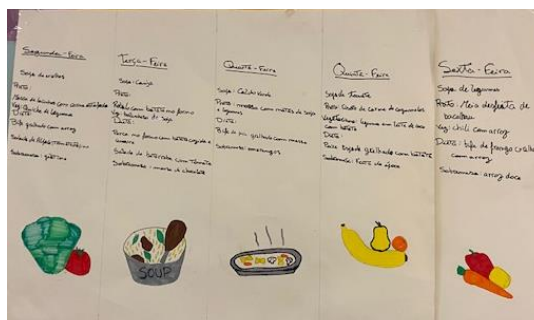 Segunda-Feira
Sopa de
Prato:
Massa de com carne
Veg: Quiche de legumes
Dieta:
Bife grelhado com arroz
Salada de
Sobremesa: gelatina
Terça-Feira
Sopa: Canja
Prato:
com batata no forno
Veg: de soja
Dieta:
no forno com batata cozida e
Salada de beterraba com tomate
Sobremesa: mousse de chocolate
Quarta-Feira
Sopa: Caldo Verde
Prato: massa com de soja
+ legumes
Dieta:
Bife de grelhado com massa
Sobremesa: morangos
Quinta-Feira
Sopa de Tomate
Prato: de carne de cogumelos
Vegetariano: legumes em leite de coco
com batata
Dieta:
grelhado com batata
Sobremesa: Fruta da época
Sexta-Feira
Sopa de legumes
Prato: Meia desfeita de
bacalhau
Veg: chili com arroz
Dieta: bife de frango grelhado
com arroz
Sobremesa: arroz doce
SOUP